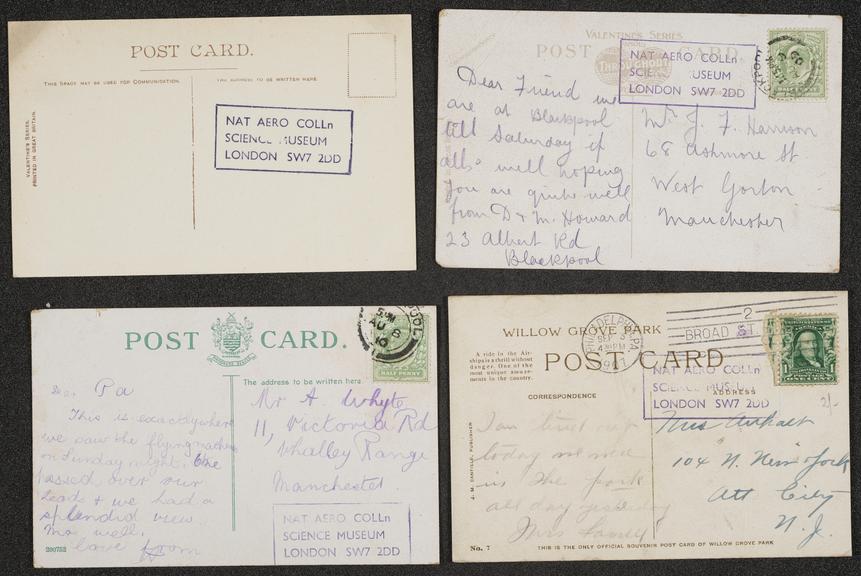 POST CARD.
THIS SPACE MAY BE USED FOR COMMUNICATION.
THE ADDRESS TO BE WRITTEN HERE.
VALENTINE'S SERIES.
PRINTED IN GREAT BRITAIN.
NAT AERO COLLn
SCIENCE MUSEUM
LONDON SW7 2DD
VALENTINE'S SERIES
POST CARD
FAMOUS
THROUGHOUT
NAT AERO COLLn
SCIENCE MUSEUM
LONDON SW7 2DD
Dear Friend we
are at Blackpool
till Saturday if
all's well hoping
you are quite well
from D & M. Howard
23 Albert Rd
Blackpool
Mr J. F. Harrison
68 Ashmore St.
West Gorton
Manchester
POST CARD.
The address to be written here.
5 PM
AU 8
10
HALF PENNY
Dear Pa
This is exactly where
we saw the flying machine
on Sunday night. One
passed over our
heads & we had a
splendid view
Ma well.
love from
Mr A. Whyte
11, Victoria Rd
Whalley Range
Manchester.
200752
NAT AERO COLLn
SCIENCE MUSEUM
LONDON SW7 2DD
WILLOW GROVE PARK
POST CARD
A ride in the Air-
ship is a thrill without
danger. One of the
most unique amuse-
ments in the country.
CORRESPONDENCE
ADDRESS
PHILADELPHIA, PA
SEP 3
430PM
1907
2
BROAD ST.
1 ONE CENT 1
NAT AERO COLLn
SCIENCE MUSEUM
LONDON SW7 2DD
2/-
I am tired out
today we were
in the park
all day yesterday
Mrs
Mrs
104 N. New York
Att City
N. J.
No. 7
THIS IS THE ONLY OFFICIAL SOUVENIR POST CARD OF WILLOW GROVE PARK